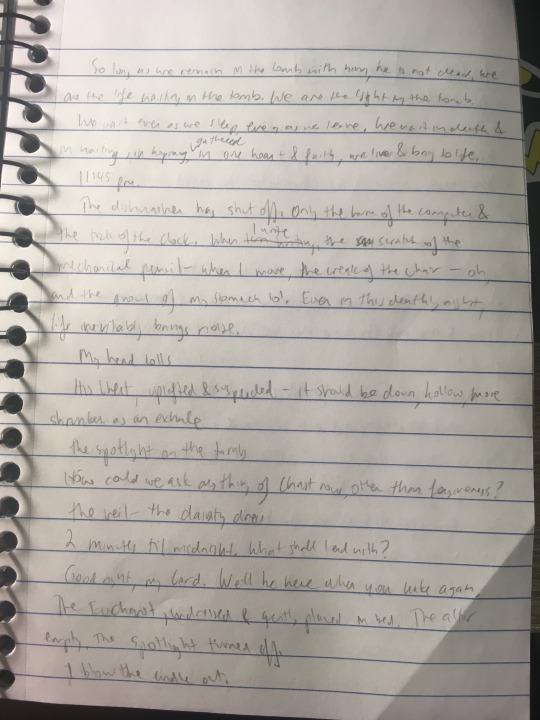 So long as we remain in the tomb with him, he is not dead, we
are the life waiting in the tomb. We are the light in the tomb.
We wait even as we sleep, even as we leave, we wait in death &
in waiting, in hoping, gathered in one heart & faith, we live & bring to life.
11:45 pm.
The dishwasher has shut off. Only the hum of the computer &
the tick of the clock. When I write, the scratch of the
mechanical pencil - when I move, the creak of the chair - oh,
and the growl of my stomach lol. Even in this deathly night,
life inevitably brings noise.
My head lolls
His chest, uplifted & suspended - it should be down, hollow, more
shrunken as an exhale
the spotlight on the tomb
How could we ask anything of Christ now, other than forgiveness?
the veil - the dainty dress
2 minutes til midnight. What shall I end with?
Good night, my Lord. We'll be here when you wake again.
The Eucharist, undressed & gently placed in bed. The altar
empty. The spotlight turned off.
I blow the candle out.